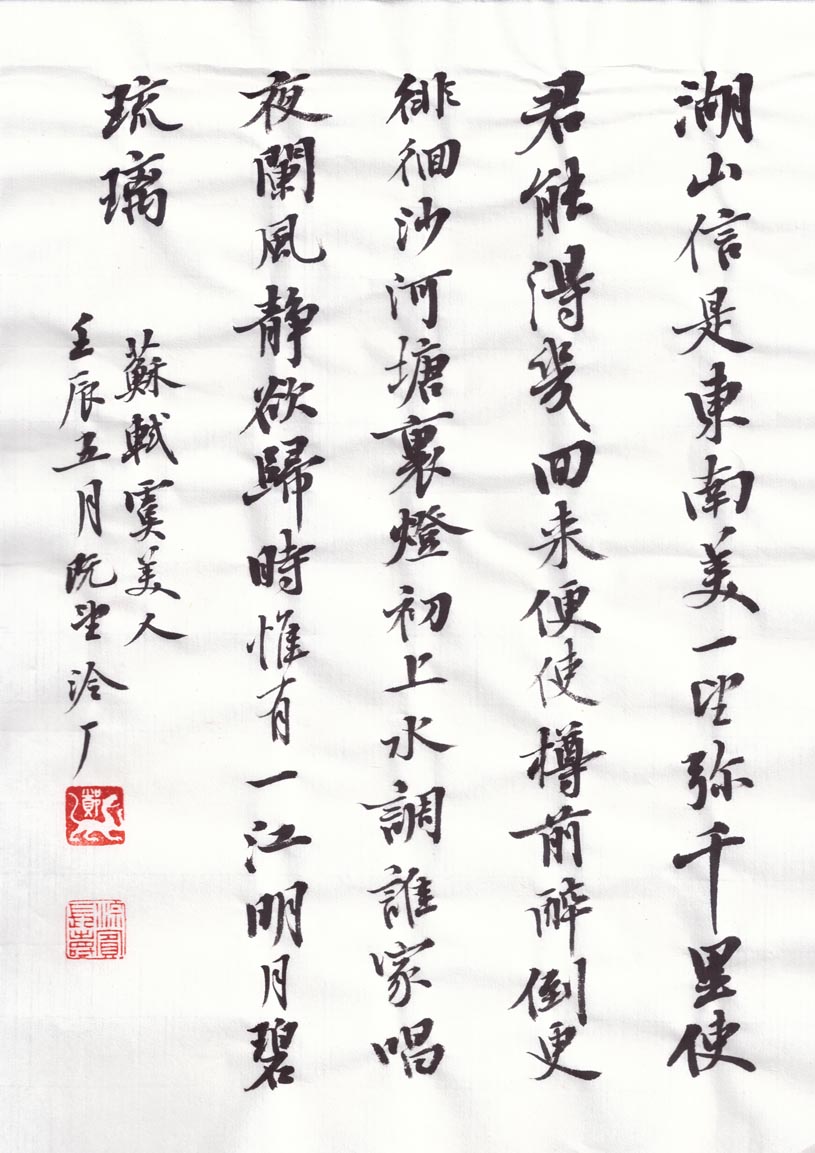 湖山信是東南美一望弥千里使
君能得幾回来便使樽前醉倒更
徘徊沙河塘裏燈初上水調誰家唱
夜闌風靜欲歸時惟有一江明月碧
琉璃
蘇軾虞美人
壬辰五月